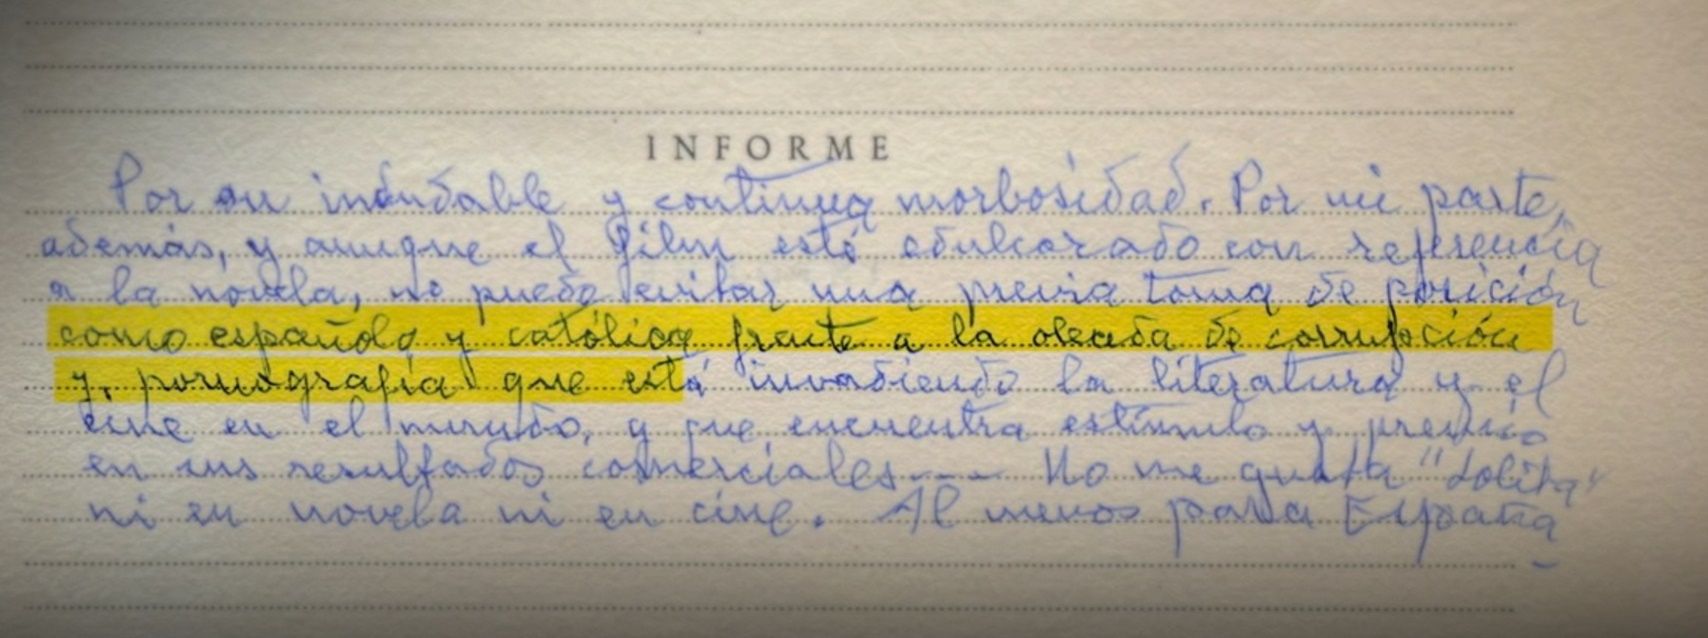 INFORME
Por su indudable y continua morbosidad. Por mi parte,
además, y aunque el film esté edulcorado con referencia
a la novela, no puedo evitar una previa toma de posición
como español y católico frente a la oleada de corrupción
y pornografía que está invadiendo la literatura y el
cine en el mundo, y que encuentra estímulo y premio
en sus resultados comerciales---- No me gusta "Lolita"
ni en novela ni en cine. Al menos para España